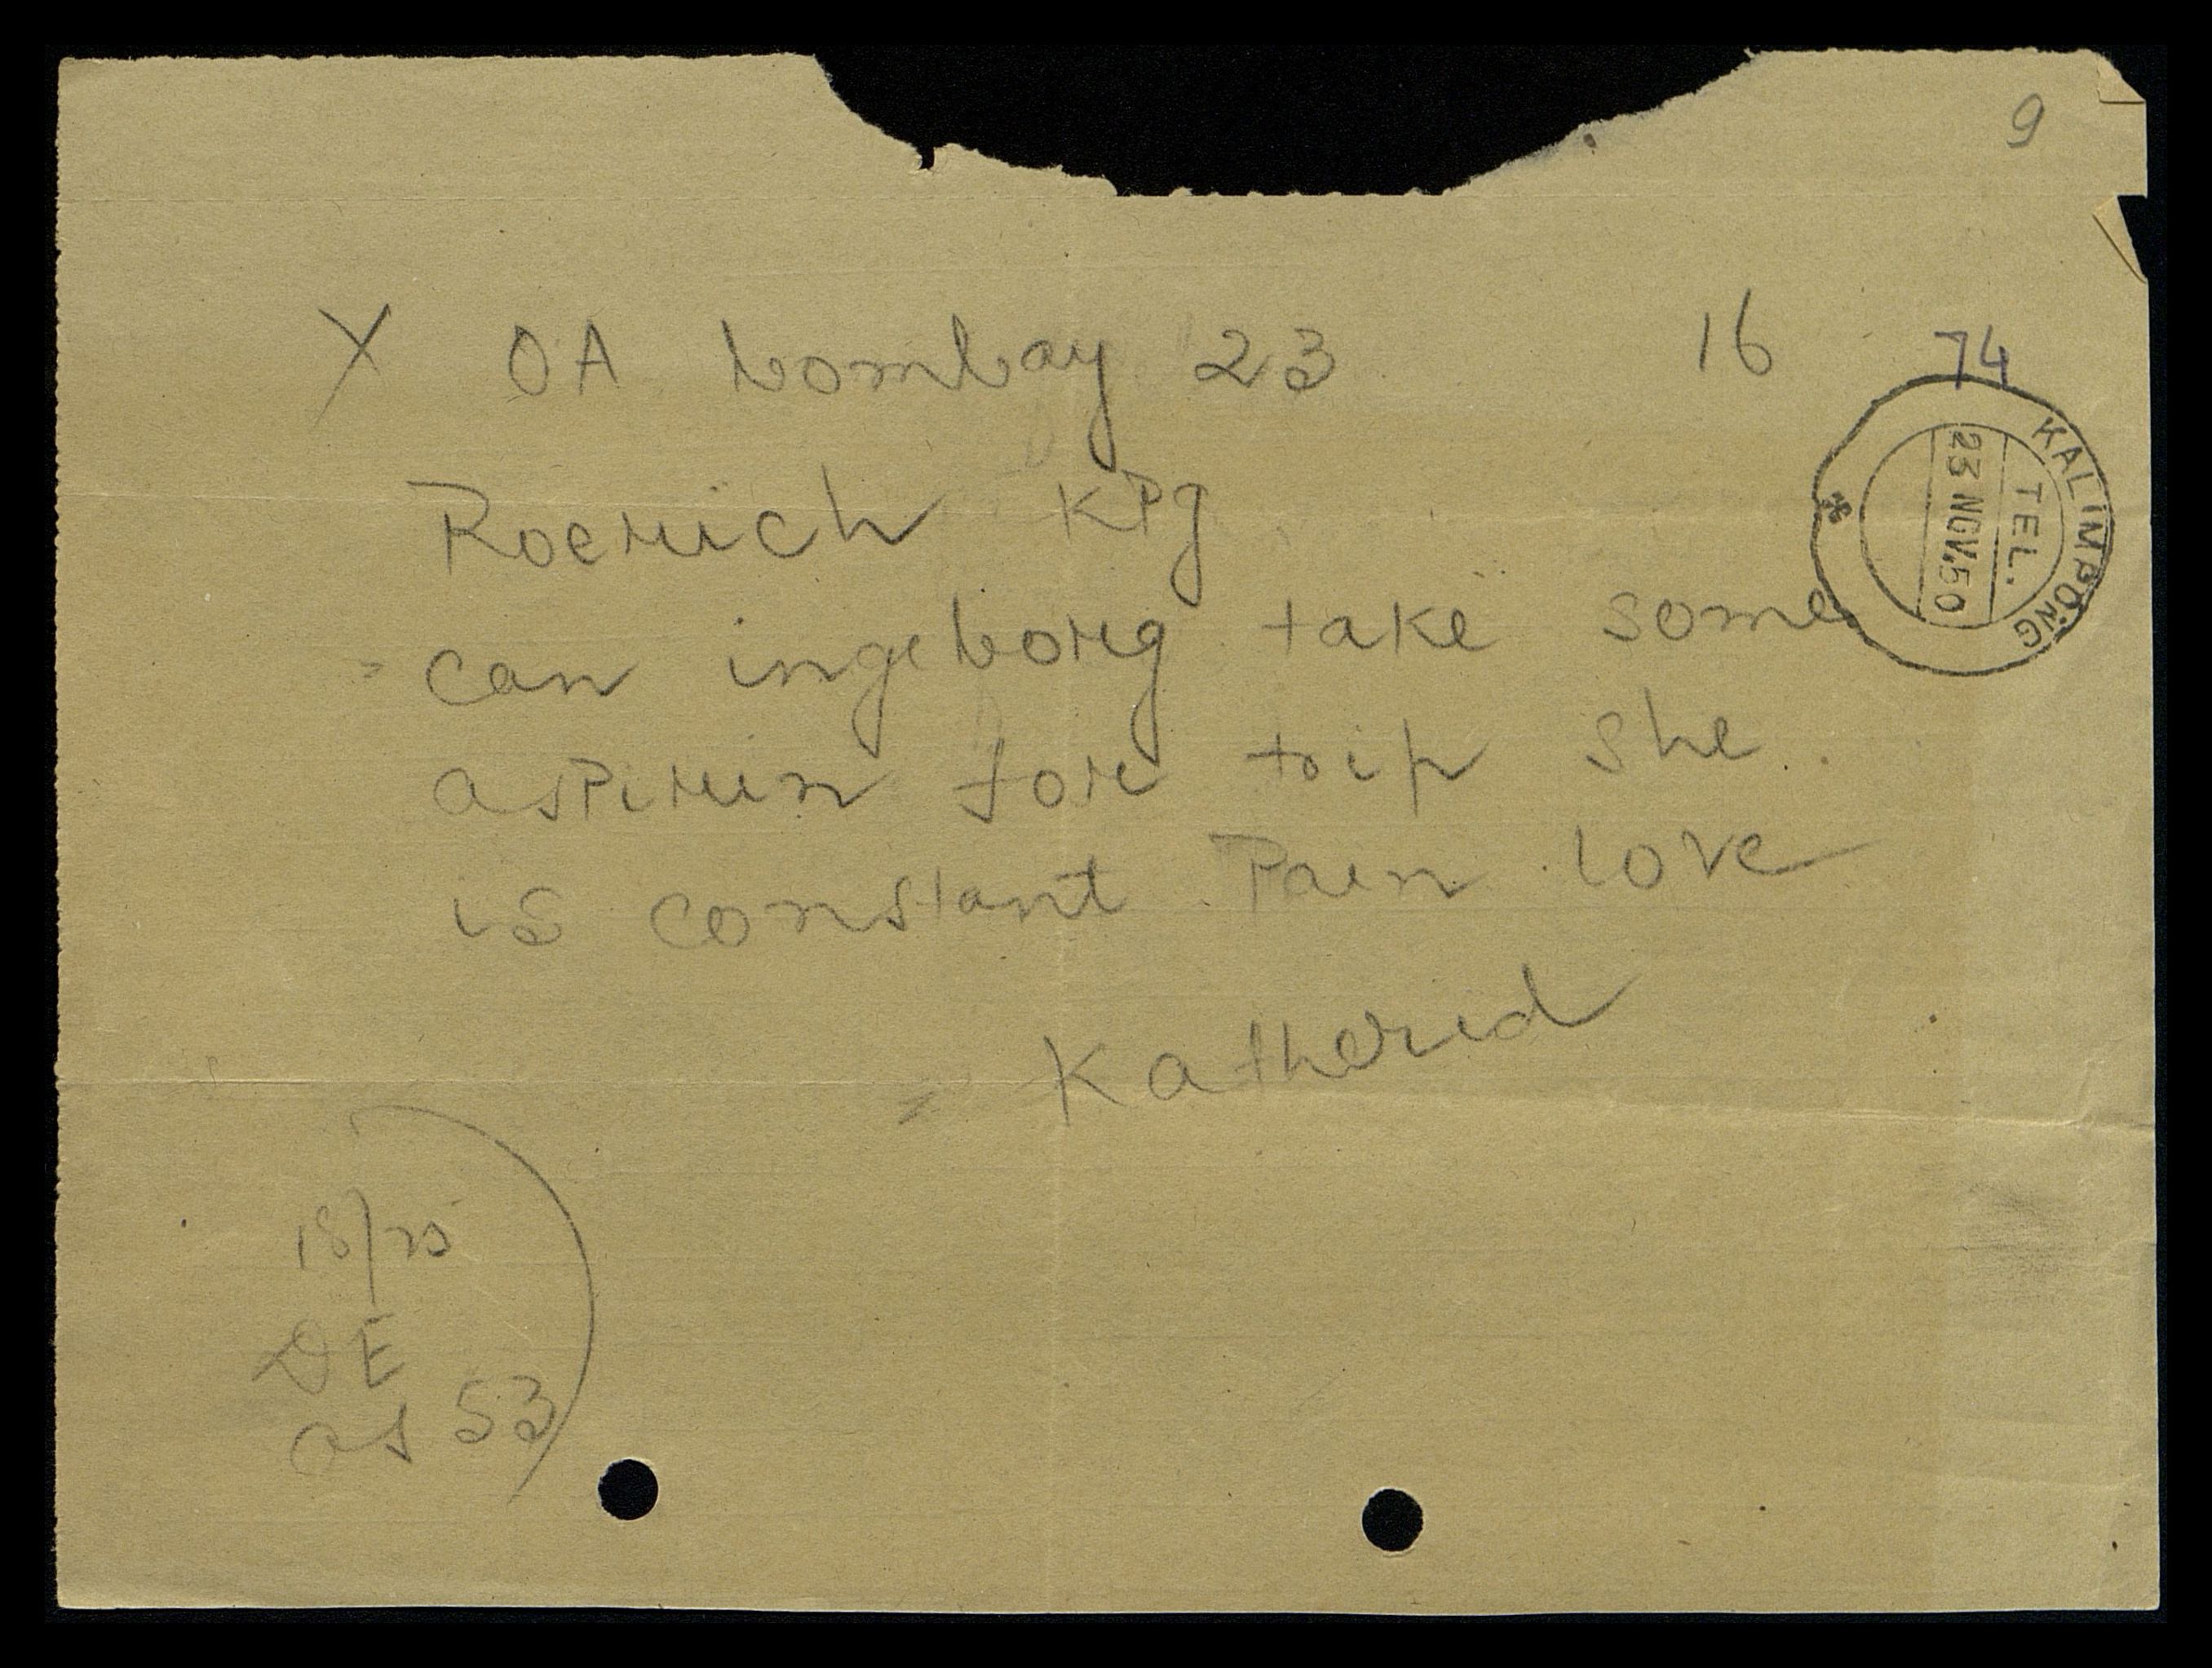 9
X OA bombay 23 16 74
KALIMPONG
TEL.
23 NOV.50
Roerich KPg
= can ingeborg take some
aspirin for trip she
is constant Pain love
= Katherid
18/25
DE
as 53